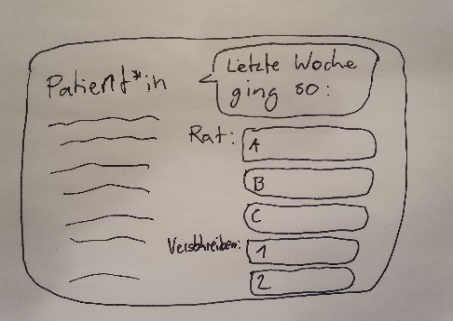 Patient*in
Letzte Woche
ging so:
Rat:
A
B
C
Verschreiben:
1
2